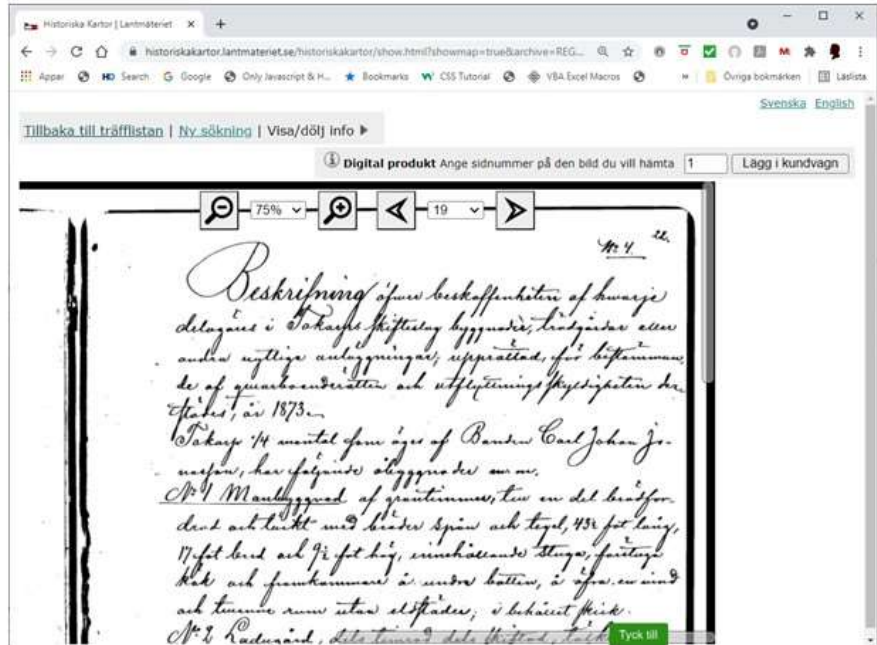 Historiska Kartor | Lantmäteriet
historiskakartor.lantmateriet.se/historiskakartor/show.html?showmap=true&archive=REG...
Appar HD Search Google Only Javascript & H... Bookmarks CSS Tutorial VBA Excel Macros » Övriga bokmärken Läslista
Svenska English
Tillbaka till träfflistan | Ny sökning | Visa/dölj info
Digital produkt Ange sidnummer på den bild du vill hämta 1 Lägg i kundvagn
75% 19
No 4. 22.
Beskrifning öfver beskaffenheten af hwarje
delägares i Tokarps skifteslag byggnader, trädgårdar eller
andra nyttiga anläggningar, upprättad, för bestämman,
de af qvarboenderätten och utflyttningsskyldigheten der-
städes, år 1873.
Tokarp 1/4 mantal som äges af Bonden Carl Johan Jo-
nasson, har följande åbyggnader m.m.
No 1 Manbyggnad af grantimmer, till en del brädfor-
drad och täckt med bräder spån och tegel, 43½ fot lång,
17 fot bred och 9½ fot hög, innehållande stuga, förstuga
kök och framkammare å undra botten, å öfra en vind
och tvenne rum utan eldstäder; i behållit skick.
No 2 Ladugård, dels timrad dels skiftad, täckt
Tyck till